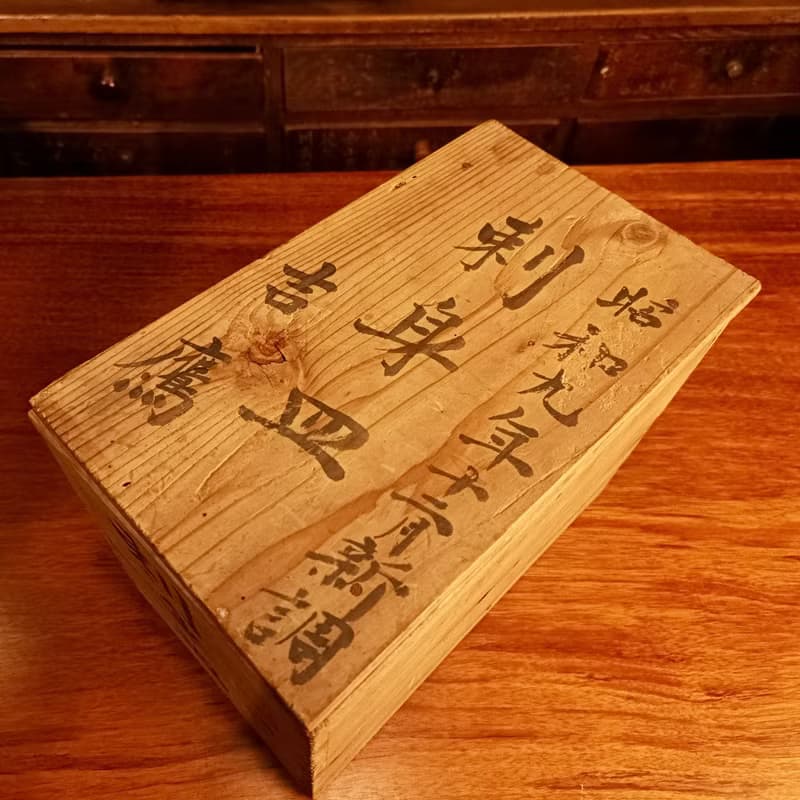 昭和九年十二月新調
刺身皿
吉鷹